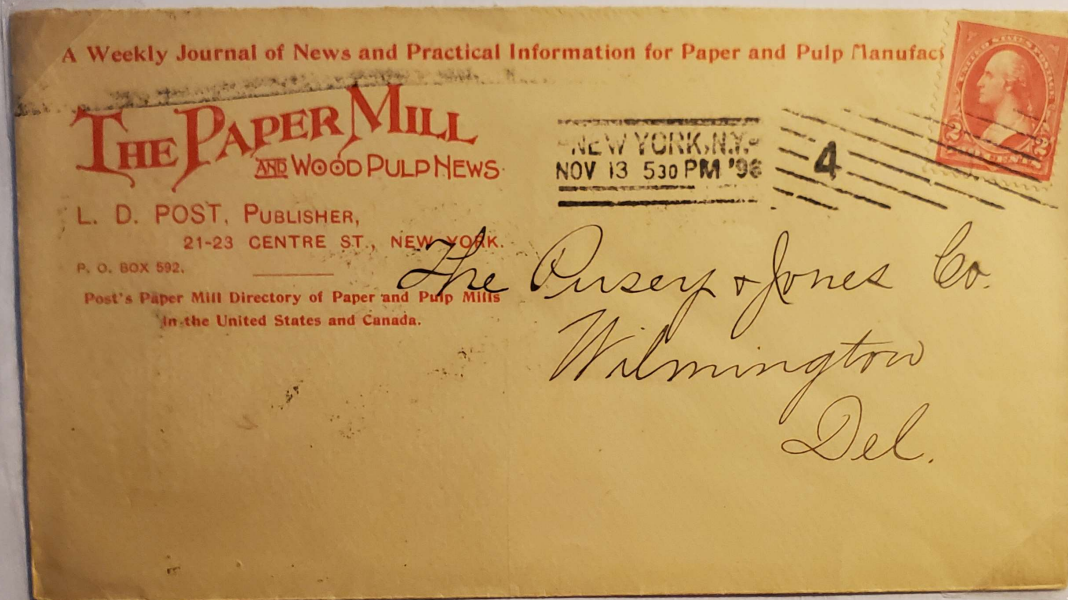 A Weekly Journal of News and Practical Information for Paper and Pulp Manufac
THE PAPER MILL
AND WOOD PULP NEWS.
L. D. POST, PUBLISHER,
21-23 CENTRE ST., NEW YORK.
P. O. BOX 592.
Post's Paper Mill Directory of Paper and Pulp Mills
in the United States and Canada.
NEW YORK, N.Y.
NOV 13 530 PM '96
4
UNITED STATES POSTAGE
2 2
The Pusey & Jones Co.
Wilmington
Del.